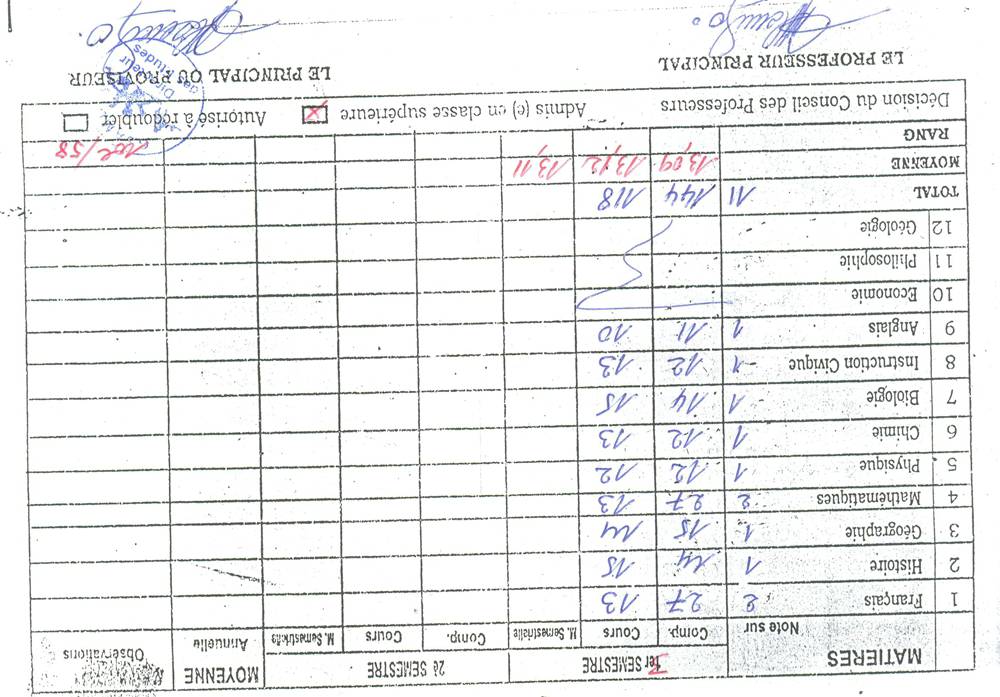 MATIERES Note sur 1er SEMESTRE 2è SEMESTRE MOYENNE Annuelle Observations
Comp. Cours M. Semestrielle Comp. Cours M. Semestrielle
1 Français 2 27 13
2 Histoire 1 14 15
3 Géographie 1 15 14
4 Mathématiques 2 27 13
5 Physique 1 12 12
6 Chimie 1 12 13
7 Biologie 1 14 15
8 Instruction Civique 1 12 13
9 Anglais 1 11 10
10 Economie
11 Philosophie
12 Géologie
TOTAL 11 144 118
MOYENNE 13,09 13,12 13,11
RANG
Décision du Conseil des Professeurs Admis (e) en classe supérieure X Autorisé à redoubler
LE PROFESSEUR PRINCIPAL LE PRINCIPAL OU PROVISEUR
Directeur
des Etudes